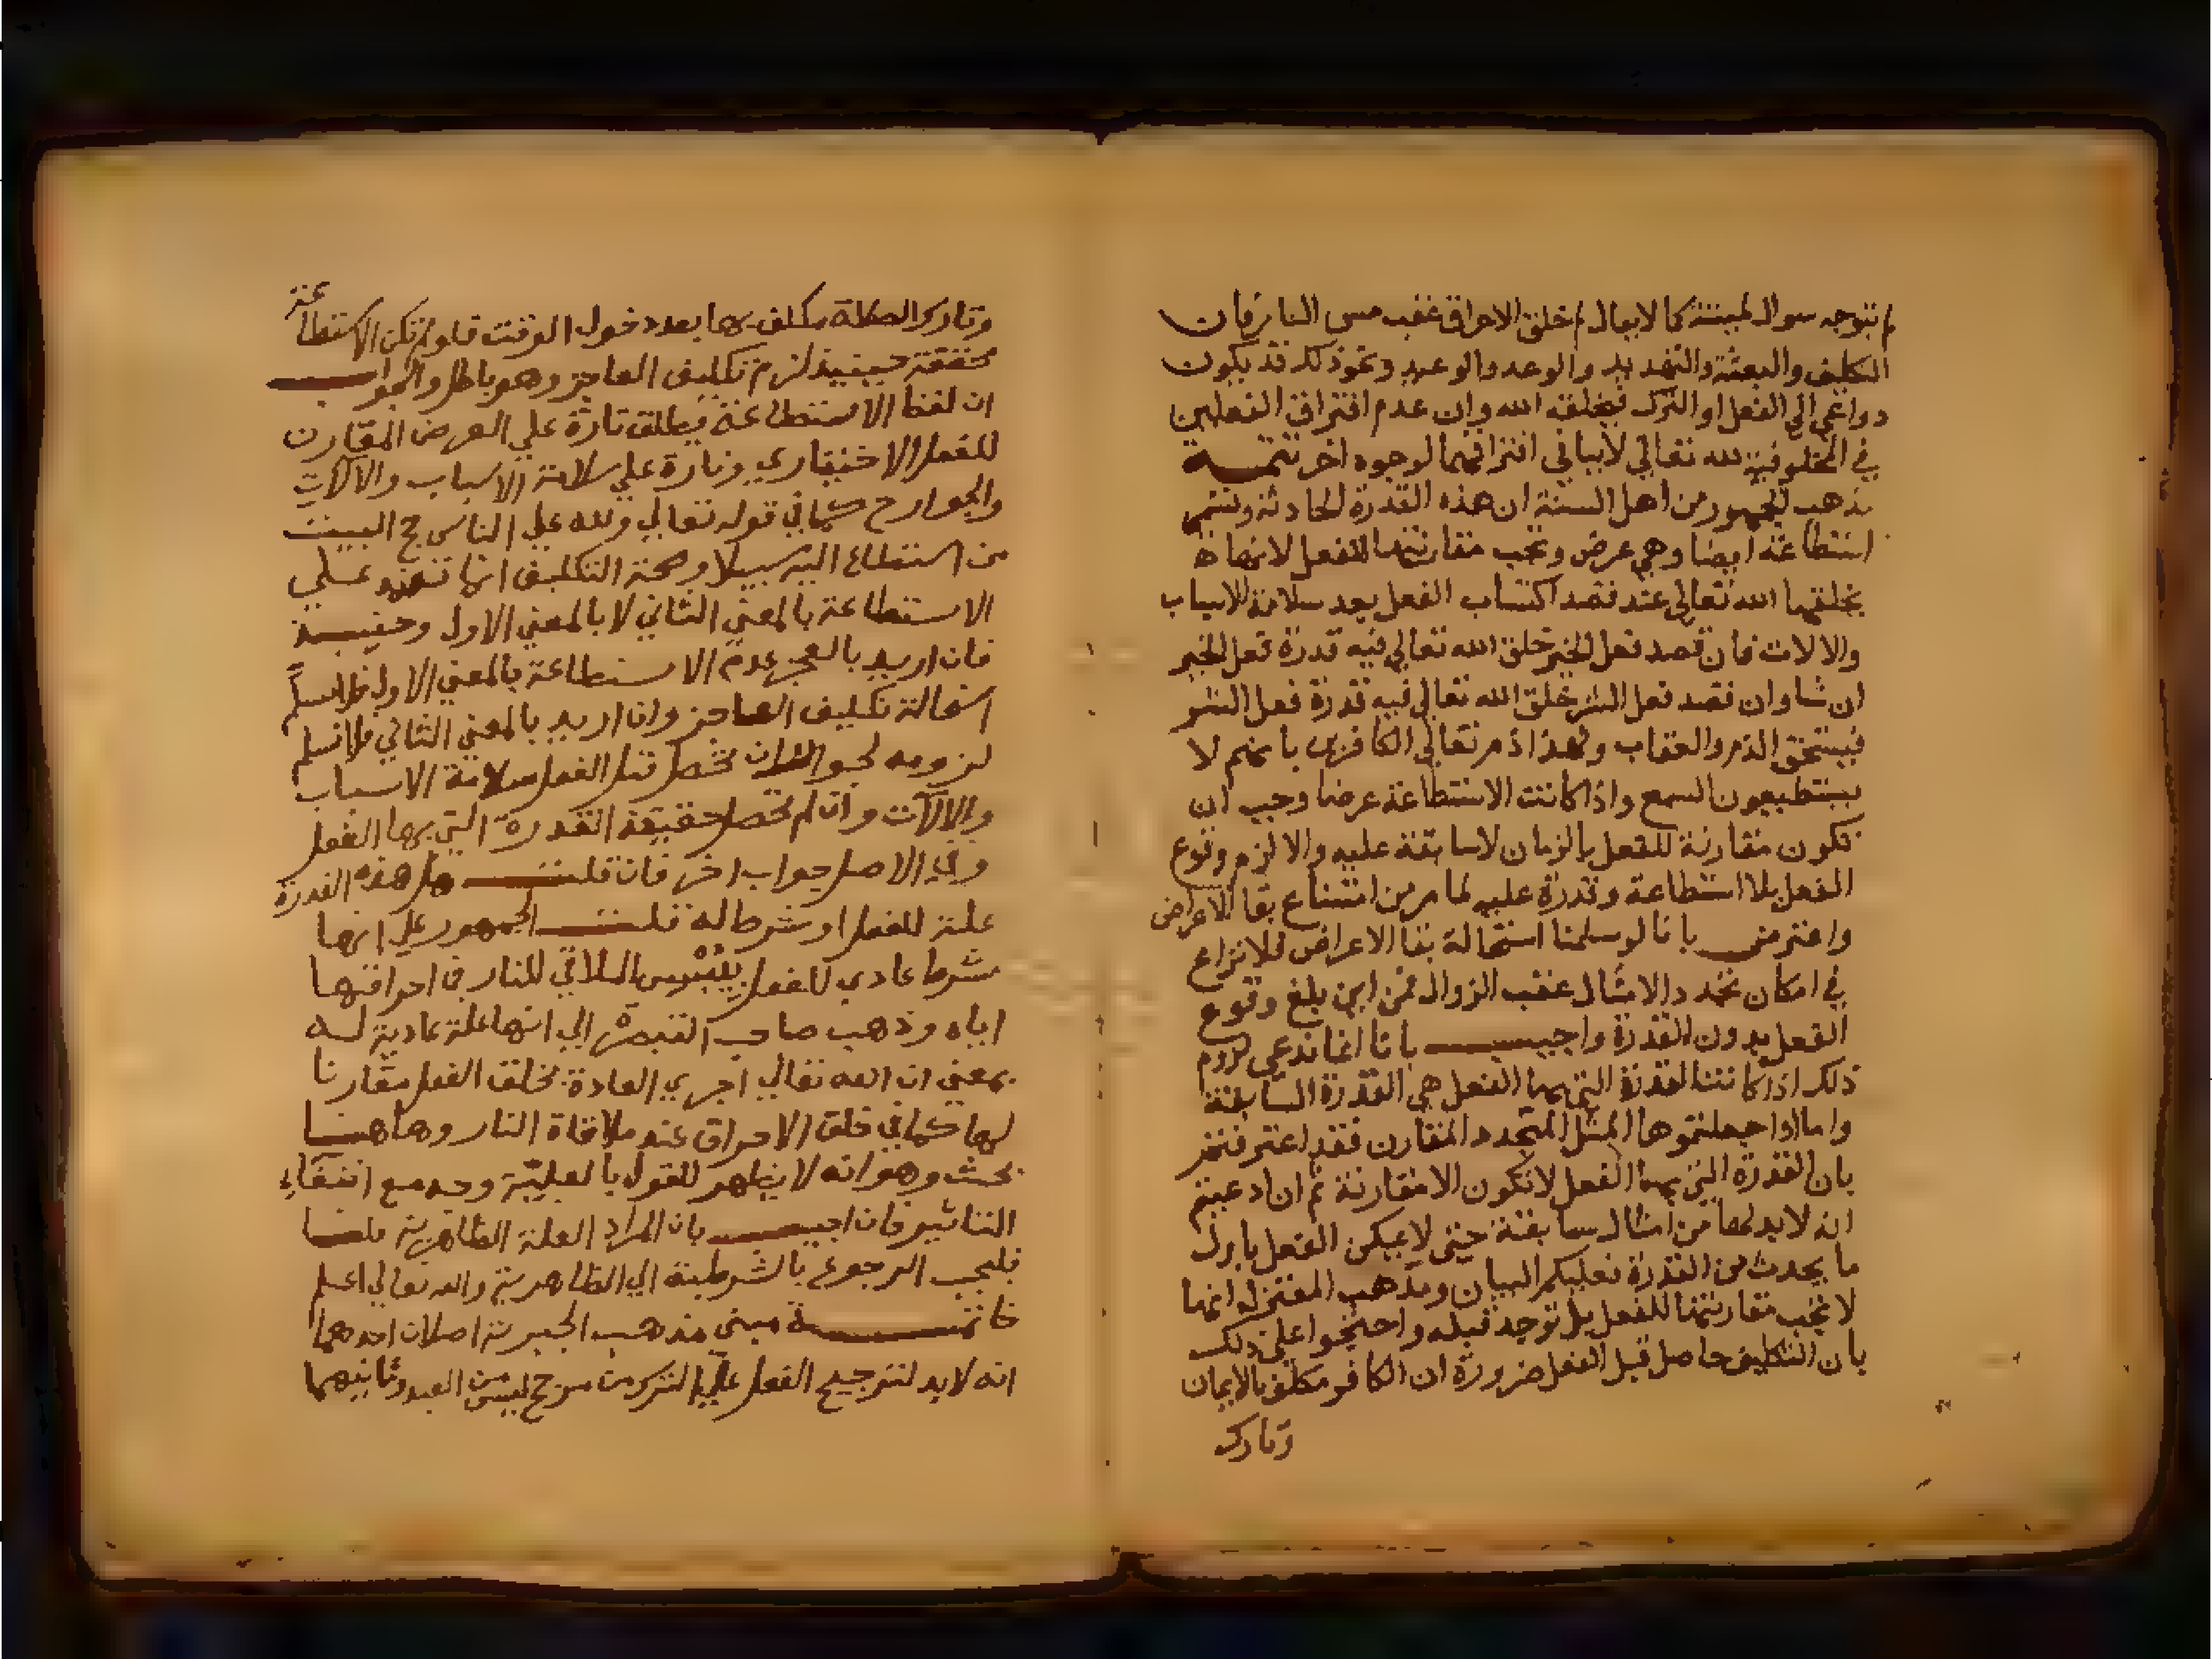 لم يتوجه سوال لميته كما لا يقال لم خلق الاحراق عقب مس النار فان
التكليف والبعثة والتهديد والوعد والوعيد ونحو ذلك قد يكون
دواعي الي الفعل او الترك فيخلقه الله وان عدم افتراق الفعلين
في المخلوقية لله تعالي لا ينافي افتراقهما لوجوه اخر تتمـــة
مذهب الجمهور من اهل السنة ان هذه القدرة الحادثة وتسمي
استطاعة ايضا وهي عرض وتجب مقارنتها للفعل لانها
يخلقها الله تعالي عند قصد اكتساب الفعل بعد سلامة الاسباب
والالات فان قصد فعل الخير خلق الله تعالي فيه قدرة فعل الخير
ان شا وان قصد فعل الشر خلق الله تعالي فيه قدرة فعل الشر
فيستحق الذم والعقاب ولهذا ذم تعالي الكافرين بانهم لا
يستطيعون السمع واذا كانت الاستطاعة عرضا وجب ان
تكون مقارنة للفعل بالزمان لا سابقة عليه والا لزم وقوع
الفعل بلا استطاعة وقدرة عليه لما مر من امتناع بقا الاعراض
واعترض بانا لو سلمنا استحالة بقا الاعراض فلا نزاع
في امكان تجدد الامثال عقب الزوال فمن اين يلغ وقوع
الفعل بدون القدرة واجيب بانا انما ندعي لزوم
ذلك اذا كانت القدرة التي بها الفعل هي القدرة السابقة
واما اذا جعلتموها المثل المتجدد المقارن فقد اعترفتم
بان القدرة التي بها الفعل لا تكون الا مقارنة ثم ان ادعيتم
انه لا بد لها من امثال سابقة حتي لا يمكن الفعل باول
ما يحدث من القدرة فعليكم البيان ومذهب المعتزلة انها
لا تجب مقارنتها للفعل بل توجد قبله واحتجوا علي ذلك
بان التكليف حاصل قبل الفعل ضرورة ان الكافر مكلف بالايمان
وتارك
وتارك الصلاة مكلف بها بعد دخول الوقت فلو لم تكن الاستطاعة
محققة حينيذ لزم تكليف العاجز وهو باطل والجواب
ان لفظ الاستطاعة يطلق تارة علي العرض المقارن
للفعل الاختياري وتارة علي سلامة الاسباب والالات
والجوارح كما في قوله تعالي ولله علي الناس حج البيت
من استطاع اليه سبيلا وصحة التكليف انما تعتمد علي
الاستطاعة بالمعني الثاني لا بالمعني الاول وحينيـذ
فان اريد بالعجز عدم الاستطاعة بالمعني الاول فلا نسلم
استحالة تكليف العاجز وان اريد بالمعني الثاني فلا نسلم
لزومه لجواز ان تحصل قبل الفعل سلامة الاسباب
والالات وان لم تحصل حقيقة القدرة التي بها الفعل
وفي الاصل جواب اخر فان قلت هل هذه القدرة
علة للفعل او شرط له قلت الجمهور علي انها
شرط عادي للفعل الملاقي للنار في احراقها
اياه وذهب صاحب التبصرة الي انها علة عادية له
بمعني ان الله تعالي اجري العادة بخلق الفعل مقارنا
لها كما في خلق الاحراق عند ملاقاة النار وهاهنا
بحث وهو انه لا يظهر للقول بالعلية وجه مع انتفاء
التاثير فان اجيب بان المراد العلة الظاهرية قلنـا
فليجب الرجوع بالشرطية الي الظاهرية والله تعالي اعلم
خاتمـــة مبني مذهب الجبرية اصلان احدهما
انه لا بد لترجيح الفعل علي الترك من مرجح ليس من العبد وثانيهما